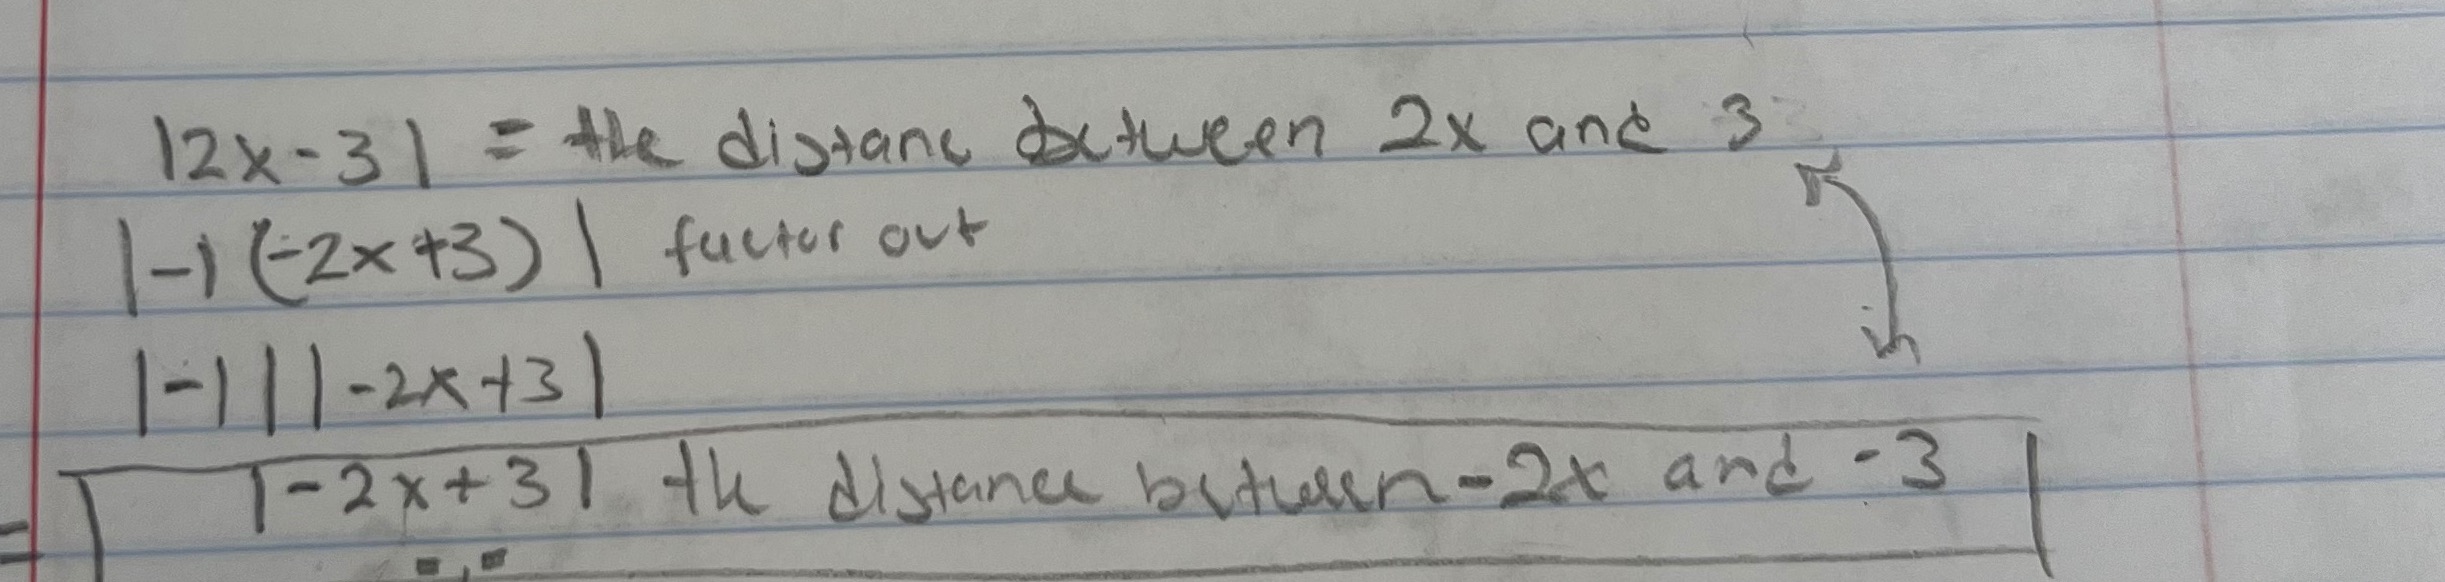 |2x-3| = the distanc between 2x and 3
|-1(-2x+3)| factor out
|-1||-2x+3|
= |-2x+3| the distance between -2x and -3